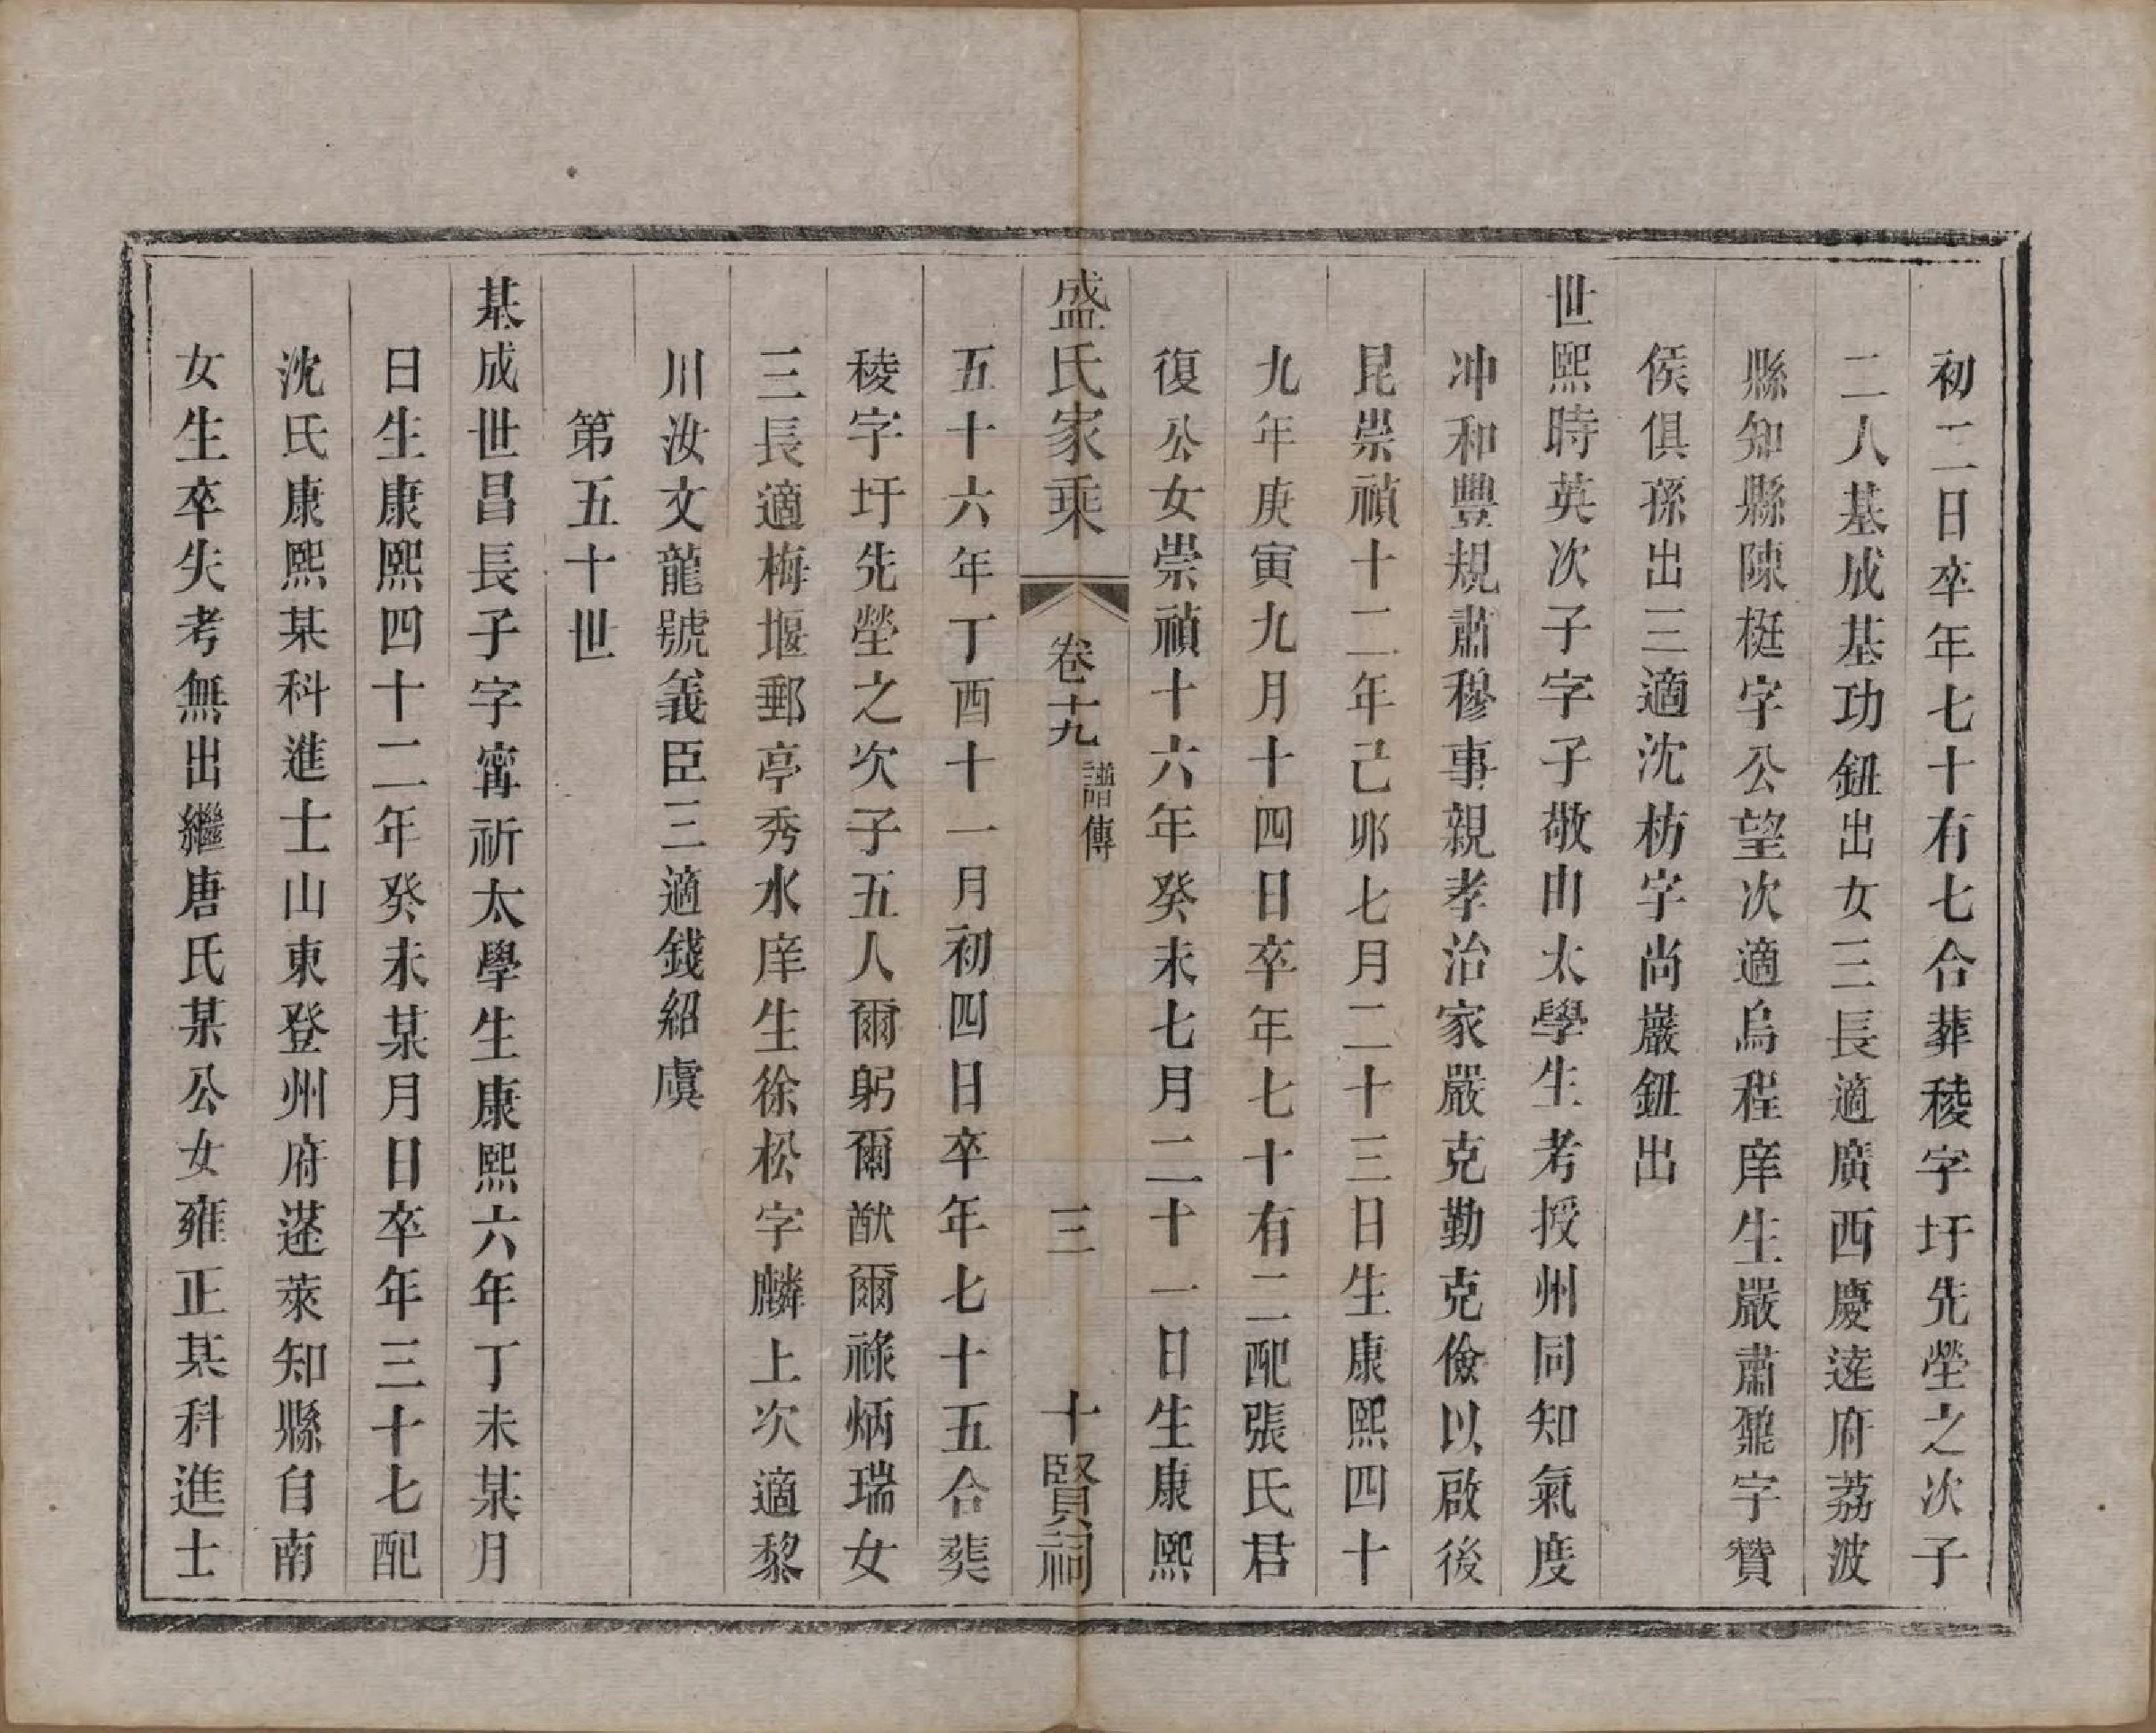 初二日卒年七十有七合葬稜字圩先塋之次子
二人基成基功鈕出女三長適廣西慶逹府荔波
縣知縣陳梃字公望次適烏程庠生嚴肅鼐字贊
侯俱孫出三適沈枋字尚巖鈕出
世熙時英次子字子敬由太學生考授州同知氣度
冲和豐規肅穆事親孝治家嚴克勤克儉以啟後
昆崇禎十二年己卯七月二十三日生康熙四十
九年庚寅九月十四日卒年七十有二配張氏君
復公女崇禎十六年癸未七月二十一日生康熙
盛氏家乘
卷十九
譜傳
三
十賢祠
五十六年丁酉十一月初四日卒年七十五合葬
稜字圩先塋之次子五人爾躬爾猷爾祿炳瑞女
三長適梅堰郵亭秀水庠生徐松字麟上次適黎
川汝文龍號義臣三適錢紹虞
第五十世
基成世昌長子字甯祈太學生康熙六年丁未某月
日生康熙四十二年癸未某月日卒年三十七配
沈氏康熙某科進士山東登州府蓬萊知縣自南
女生卒失考無出繼唐氏某公女雍正某科進士